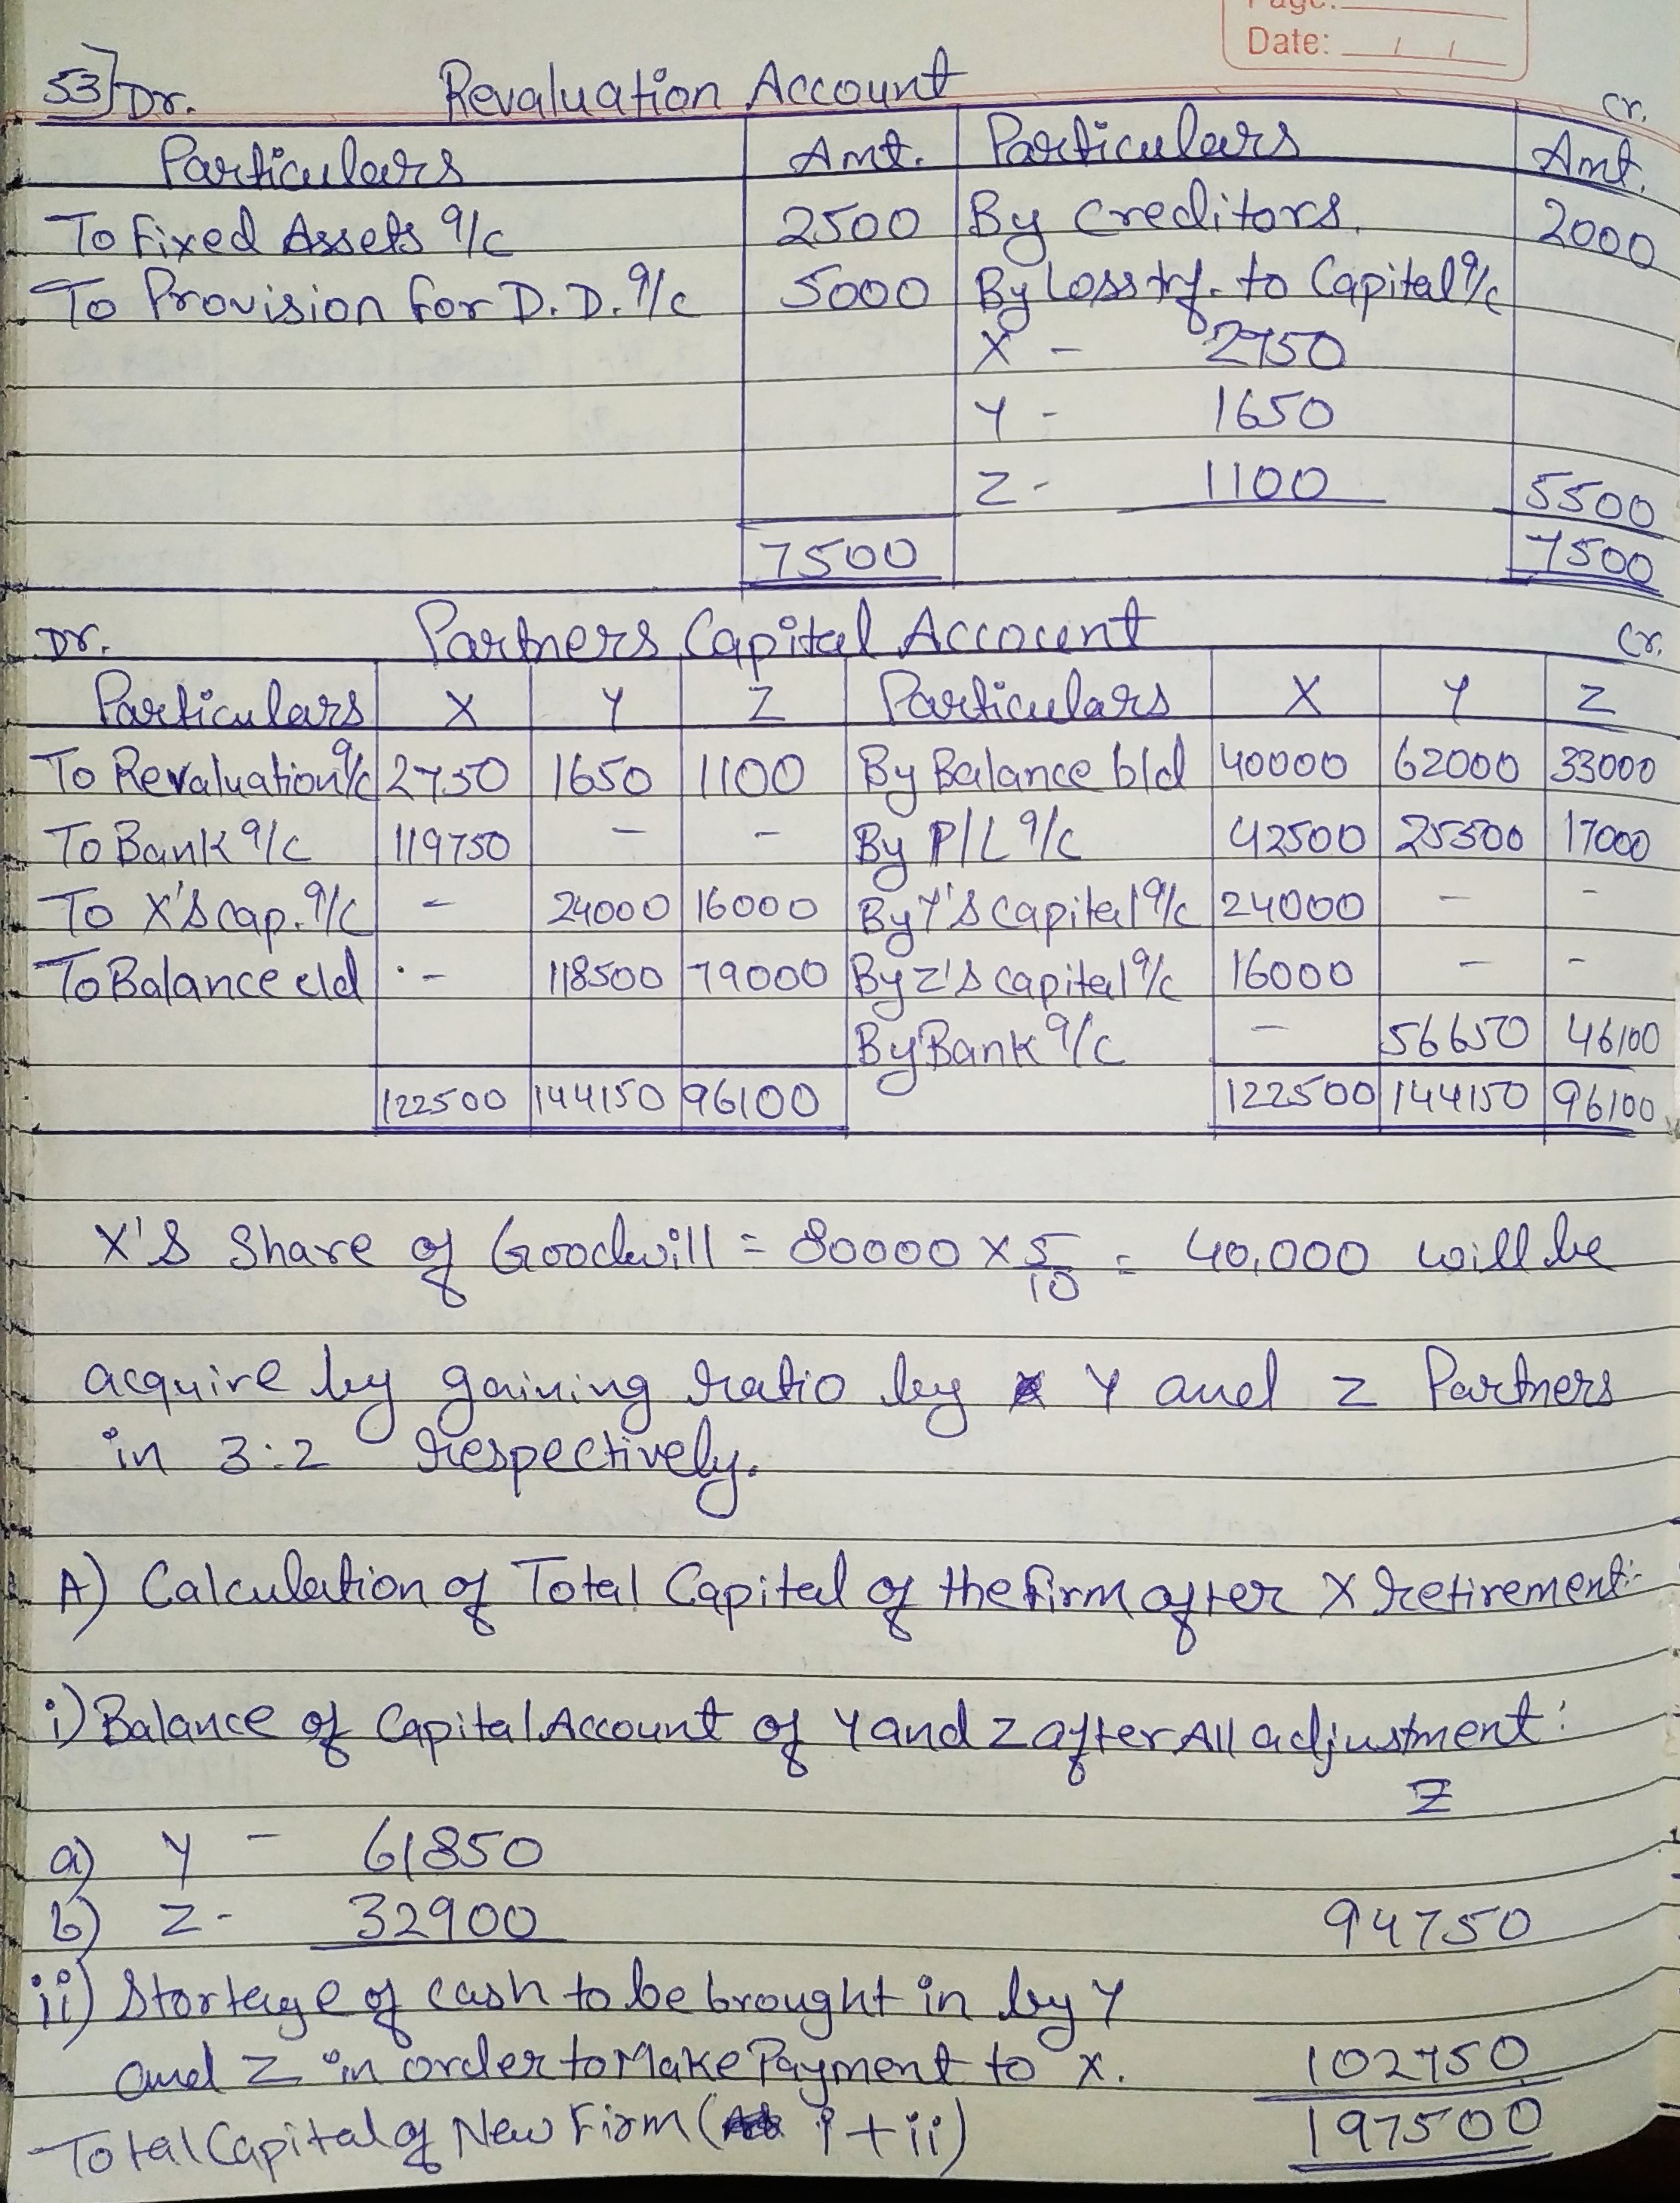 Page:
Date: / /
53) Dr. Revaluation Account Cr.
Particulars Amt. Particulars Amt.
To Fixed Assets a/c 2500 By Creditors. 2000
To Provision for D.D. a/c 5000 By Loss trf. to Capital a/c
X - 2750
Y - 1650
Z - 1100 5500
7500 7500
Dr. Partners Capital Account Cr.
Particulars X Y Z Particulars X Y Z
To Revaluation a/c 2750 1650 1100 By Balance b/d 40000 62000 33000
To Bank a/c 119750 - - By P/L a/c 42500 25500 17000
To X's cap. a/c - 24000 16000 By Y's Capital a/c 24000 - -
To Balance c/d - 118500 79000 By Z's capital a/c 16000 - -
By Bank a/c - 56650 46100
122500 144150 96100 122500 144150 96100
X's Share of Goodwill = 80000 × 5/10 = 40,000 will be
acquire by gaining ratio by Y and Z Partners
in 3:2 respectively.
A) Calculation of Total Capital of the firm after X retirement:-
i) Balance of Capital Account of Y and Z after All adjustment:
₹
a) Y - 61850
b) Z - 32900 94750
ii) Stortage of cash to be brought in by Y
and Z in order to Make Payment to X. 102750
Total Capital of New Firm (i + ii) 197500